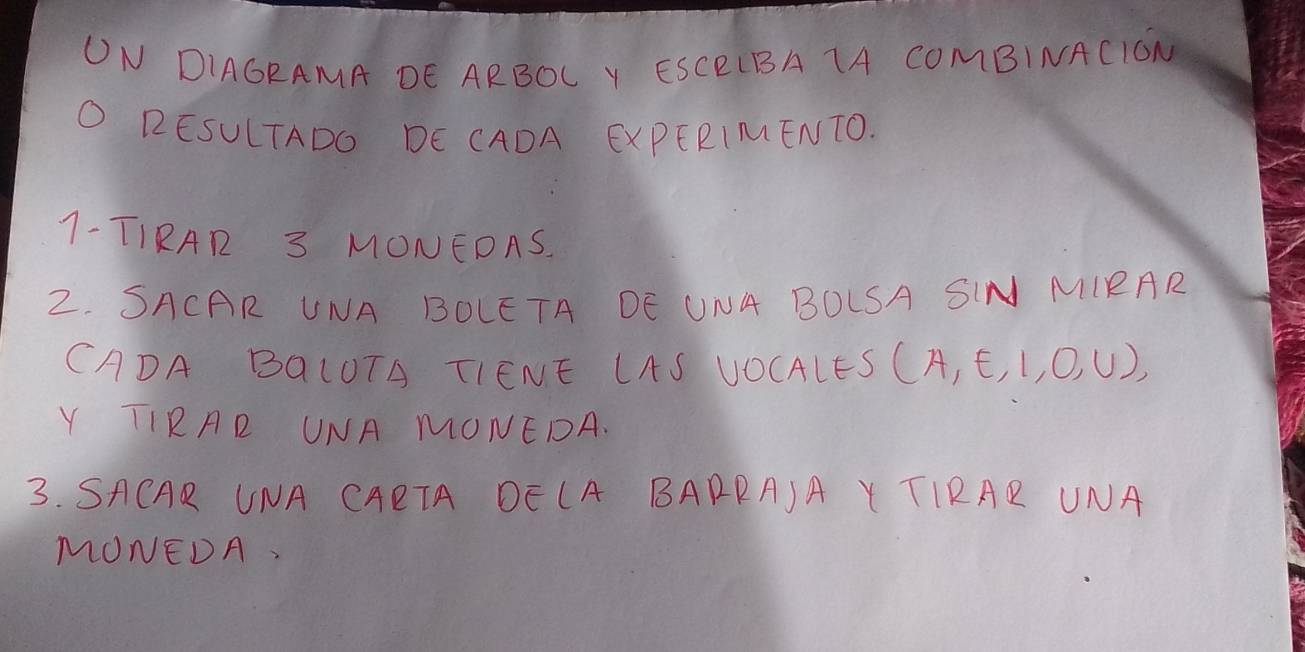 UN DIAGRAMA DE ARBOL Y ESCRIBA LA COMBINACIÓN
O RESULTADO DE CADA EXPERIMENTO.
1-TIRAR 3 MONEDAS.
2. SACAR UNA BOLETA DE UNA BOLSA SIN MIRAR
CADA BalOTA TIENE LAS VOCALES (A, E, I, O, U),
Y TIRAR UNA MONEDA.
3. SACAR UNA CARTA DE LA BARRAJA Y TIRAR UNA
MONEDA.